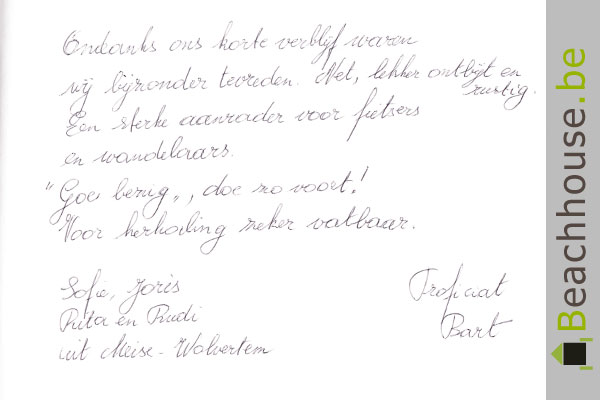 Ondanks ons korte verblijf waren
wij bijzonder tevreden. Net, lekker ontbijt en
rustig.
Een sterke aanrader voor fietsers
en wandelaars.
"Goe bezig", doe zo voort!
Voor herhaling zeker vatbaar.
Sofie, Joris
Rita en Rudi
uit Meise-Wolvertem
Proficiat
Bart
Beachhouse.be